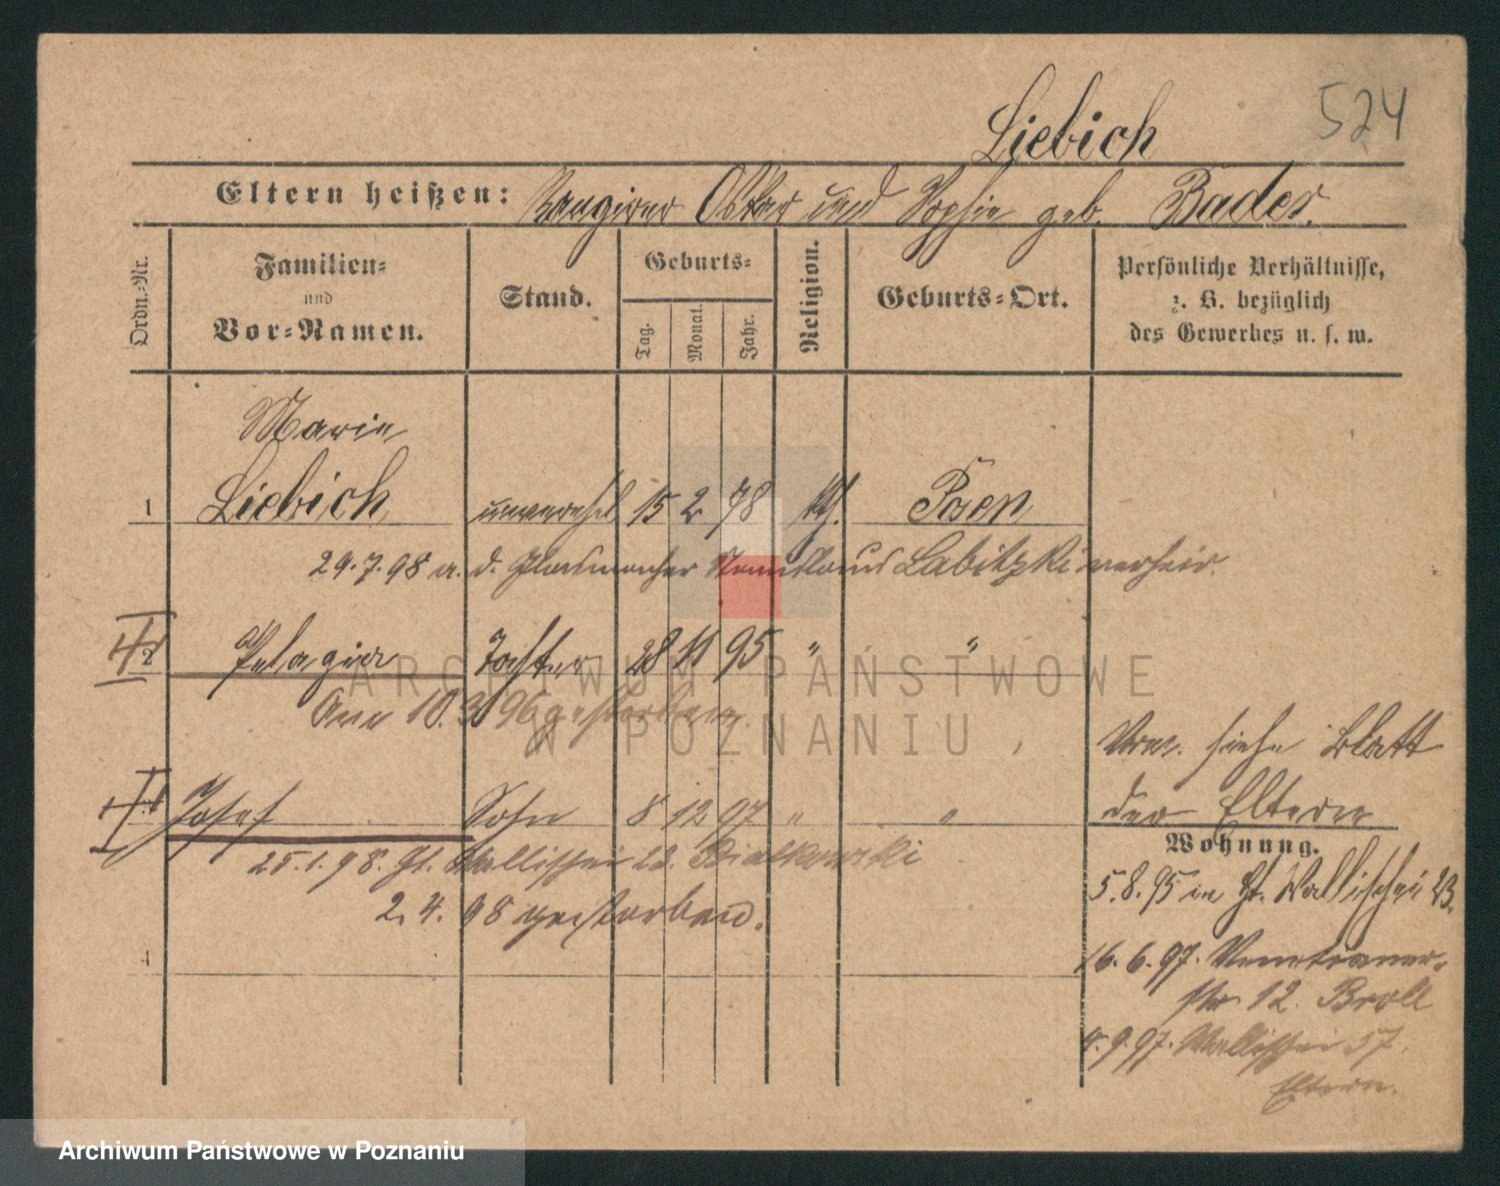 524
Liebich
Eltern heißen: Rangirer Oskar und Sophie geb. Bader.
Ordn.-Nr.
Familien-
und
Vor-Namen.
Stand.
Geburts-
Tag.
Monat.
Jahr.
Religion.
Geburts-Ort.
Persönliche Verhältnisse,
z. B. bezüglich
des Gewerbes u. s. w.
Marie
1 Liebich unverehel 15 2 78 kth. Posen
29.7.98 a. d. Labitzki verheir.
2 Pelagia Tochter 28 11 95 " "
Am 10.3.96 gestorben.
Josef Sohn 8 12 97 " "
25.1.98. St. Wallischei Bialkowski
2.4.98 gestorben.
4
Vrm. siehe Blatt
der Eltern
Wohnung.
5.8.95 in St. Wallischei 23.
16.6.97. Venetianer-
str. 12. Broll
4.9.97. Wallischei 57.
Eltern.
ARCHIWUM PAŃSTWOWE
W POZNANIU
Archiwum Państwowe w Poznaniu